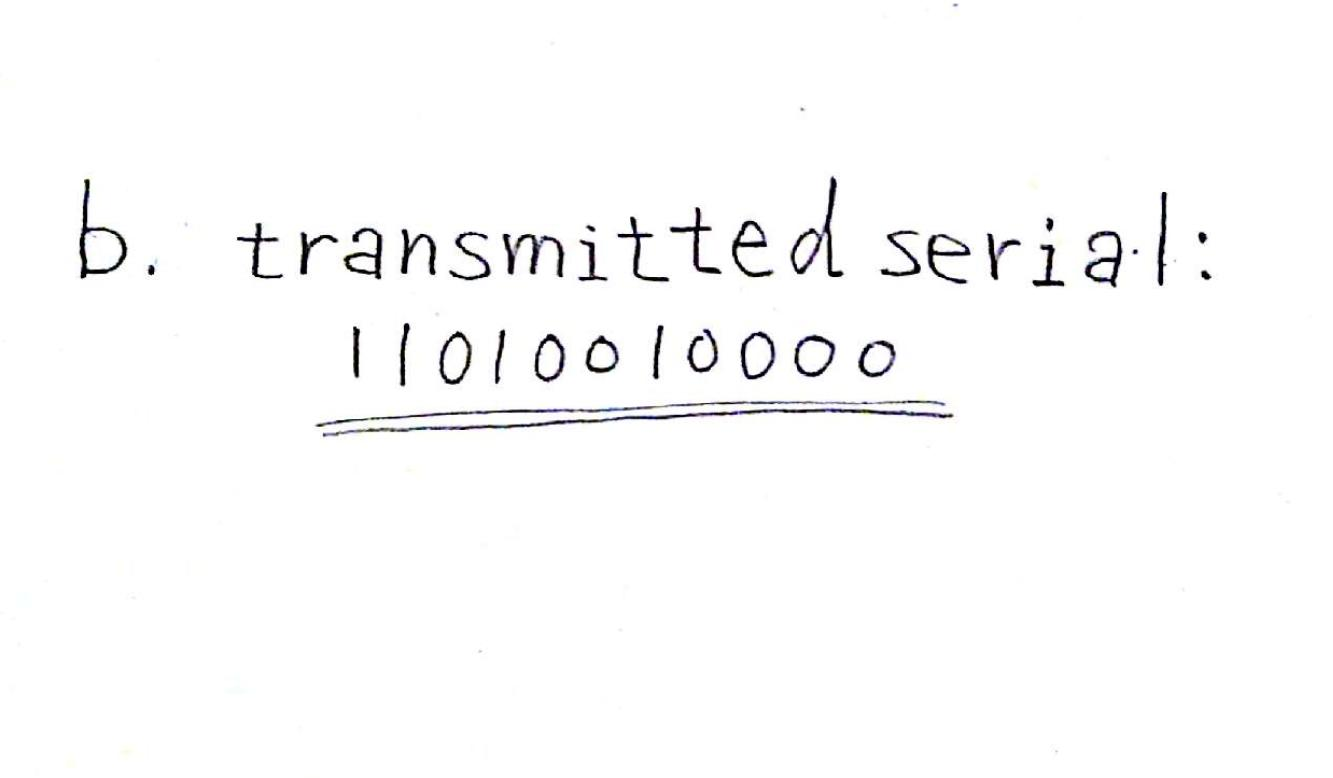 b. transmitted serial:
11010010000